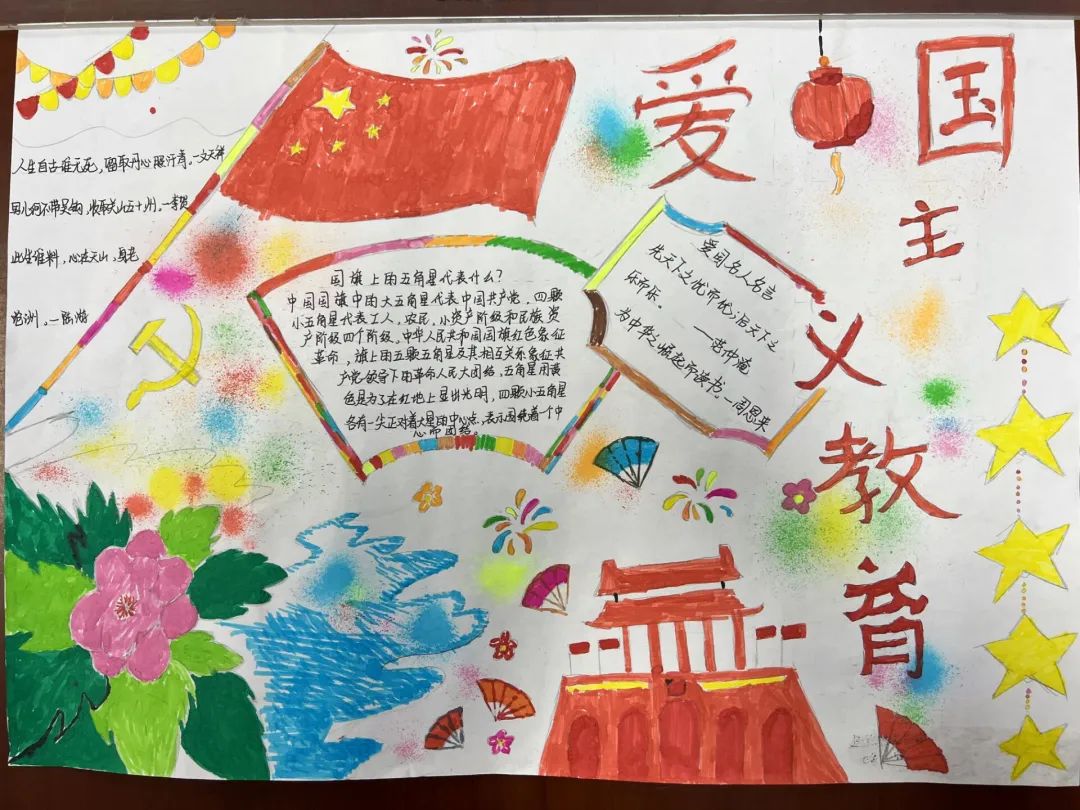 爱国
主
义
教
育
人生自古谁无死，留取丹心照汗青。—文天祥
男儿何不带吴钩，收取关山五十州。—李贺
此生谁料，心在天山，身老
沧洲。—陆游
国旗上的五角星代表什么？
中国国旗中的大五角星代表中国共产党，四颗
小五角星代表工人，农民，小资产阶级和民族资
产阶级四个阶级。中华人民共和国国旗红色象征
革命，旗上的五颗五角星及其相互关系象征共
产党领导下的革命人民大团结，五角星用黄
色是为了在红地上显出光明，四颗小五角星
各有一尖正对着大星的中心点，表示围绕着一个中
心而团结。
爱国名人名言
先天下之忧而忧，后天下之
乐而乐。 ——范仲淹
为中华之崛起而读书。—周恩来